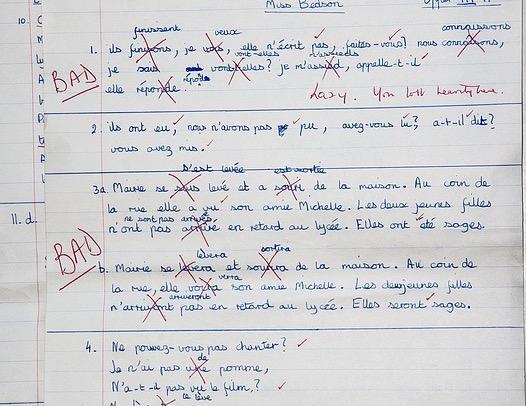 Miss Bedson
10.
finissent veux connaissons
1. ils finissons, je vois, elle n'écrit pas, faites-vous? nous connaisons,
vont-elles m'assieds
je sais vont-elles? je m'assied, appelle-t-il
BAD
répond
elle réponde.
Lazy. You lost
2. ils ont eu, nous n'avons pas pu, avez-vous lu? a-t-il dit?
vous avez mis.
s'est levée est sortie
3a. Marie se suis levé et a de la maison. Au coin de
la rue elle a vu son amie Michelle. Les deux jeunes filles
ne sont pas arrivés
n'ont pas arrivé en retard au lycée. Elles ont été sages.
11. d.
BAD
lèvera sortira
b. Marie se levera et de la maison. Au coin de
verra
la rue, elle son amie Michelle. Les deux jeunes filles
arriveront
n'arriveont pas en retard au lycée. Elles seront sages.
4. Ne pouvez-vous pas chanter?
de
Je n'ai pas une pomme,
N'a-t-il pas vu le film?
se lève